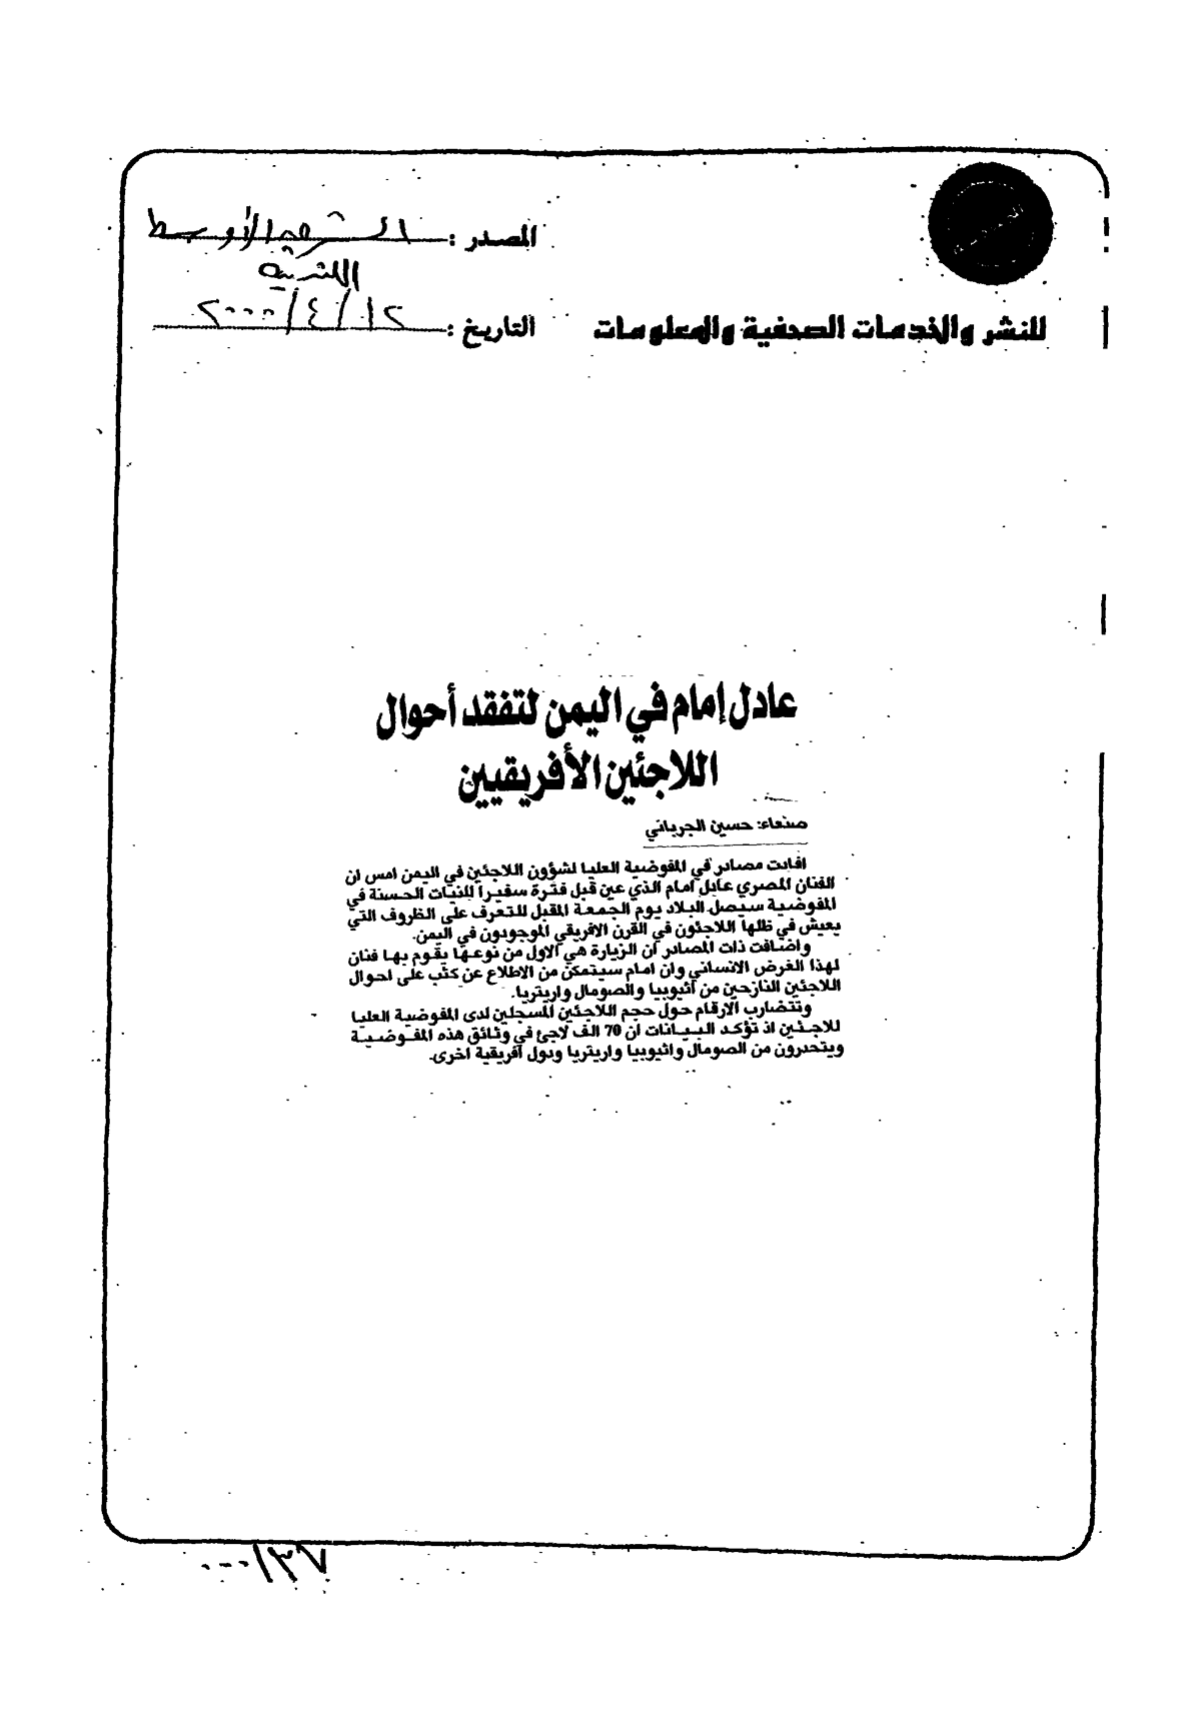 المصدر : الشرق الأوسط
اللندنية
للنشر والخدمات الصحفية والمعلومات
التاريخ : ١٢/٤/٢٠٠٠
عادل إمام في اليمن لتفقد أحوال
اللاجئين الأفريقيين
صنعاء: حسين الجرباني
افادت مصادر في المفوضية العليا لشؤون اللاجئين في اليمن امس ان
الفنان المصري عادل امام الذي عين قبل فترة سفيراً للنيات الحسنة في
المفوضية سيصل البلاد يوم الجمعة المقبل للتعرف على الظروف التي
يعيش في ظلها اللاجئون في القرن الافريقي الموجودون في اليمن.
واضافت ذات المصادر ان الزيارة هي الاول من نوعها يقوم بها فنان
لهذا الغرض الانساني وان امام سيتمكن من الاطلاع عن كثب على احوال
اللاجئين النازحين من اثيوبيا والصومال واريتريا.
وتتضارب الارقام حول حجم اللاجئين المسجلين لدى المفوضية العليا
للاجئين اذ تؤكد البيانات ان 70 الف لاجئ في وثائق هذه المفوضية
ويتحدرون من الصومال واثيوبيا واريتريا ودول افريقية اخرى.